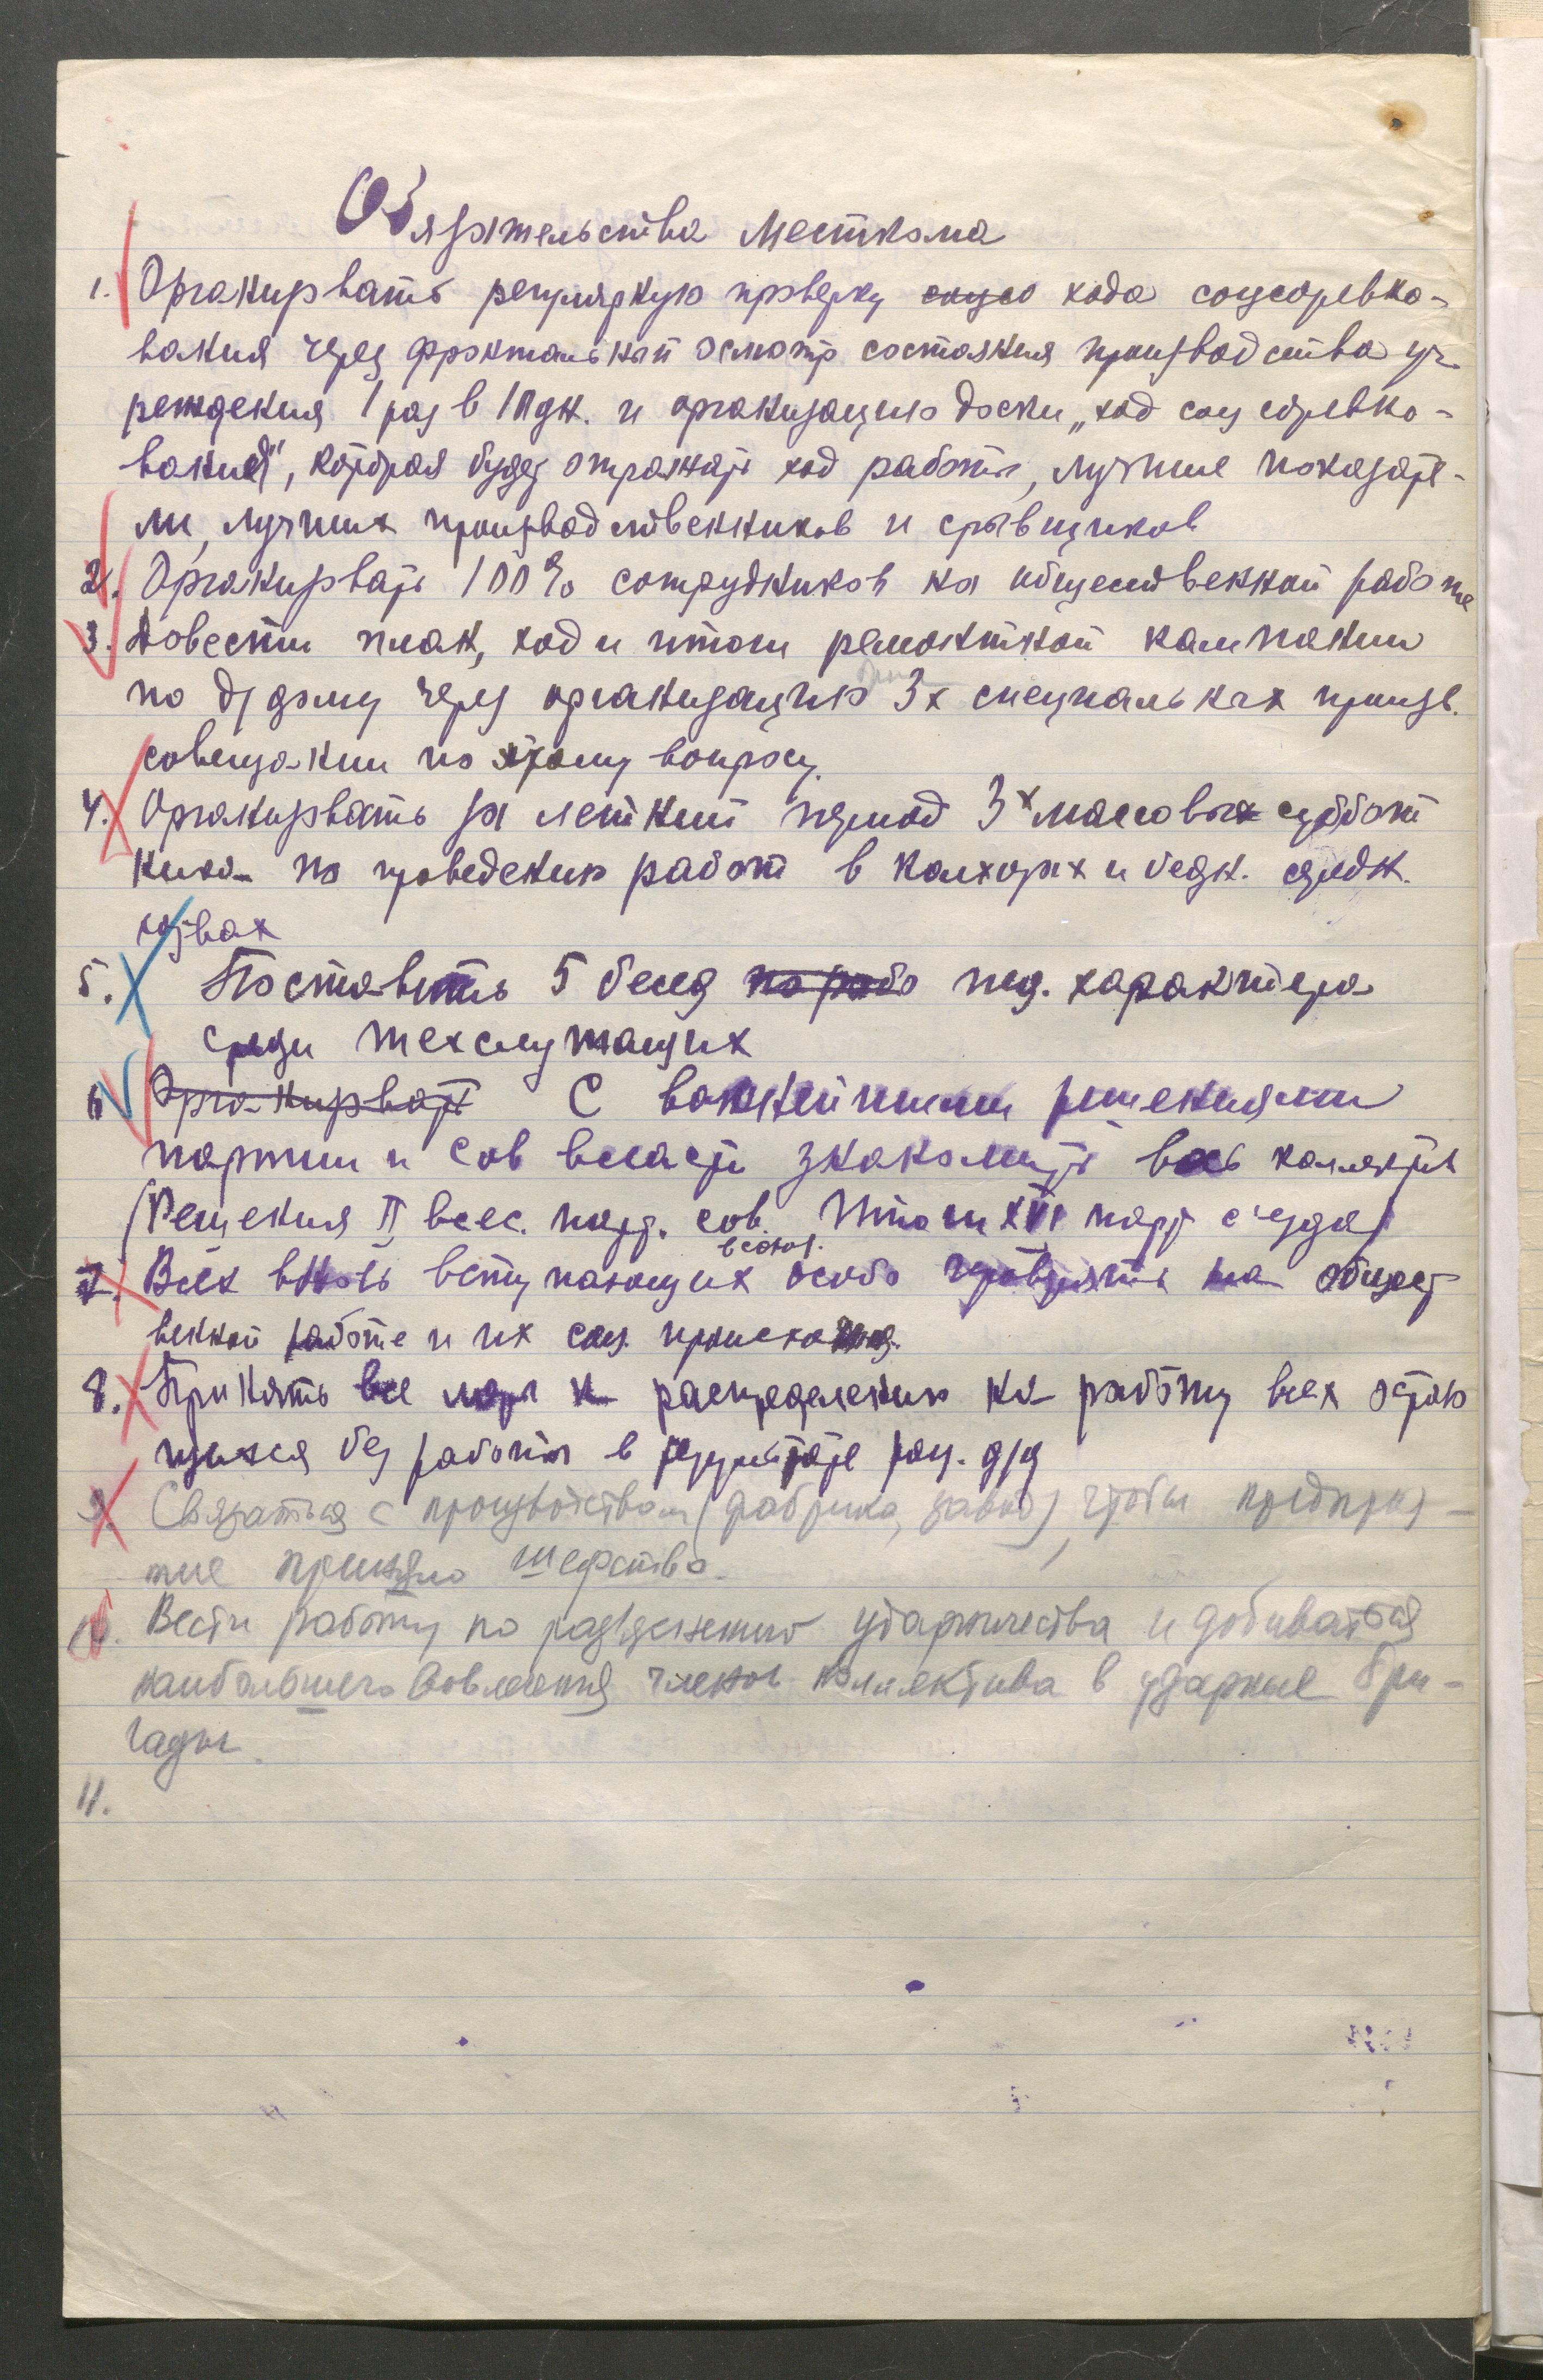 Обязательства Месткома
1. Организовать регулярную проверку хода соцсоревно-
вания через фронтальный осмотр состояния производства уч-
реждения 1 раз в 10 дн. и организацию доски „ход соцсоревно-
вания", которая будет отражать ход работы, лучшие показате-
ли, лучших производственников и срывщиков
2. Организовать 100% сотрудников на общественной работе
3. Довести план, ход и итоги ремонтной кампании
по д/дому через организацию 3х специальных произв.
совещании по этому вопросу.
4. Организовать за летний период 3х массовых суббот
ника по проведению работ в колхозах и бедн. средн.
х/твах
5. Поставить 5 бесед по рабо пед. характера
среди техслужащих
6. Организовать С важнейшими решениями
партии и сов власти знакомить весь коллектив
(Решения II всес. парт. сов. Итоги XVI парт съезда)
7. Всех вновь вступающих особо проверять на общест
венной работе и их соц. происхожд.
8. Принять все меры к распределению на работу всех остаю
щихся без работы в результате рац. д/д
9. Связаться с производством (фабрика, завод), чтобы предприя-
тие приняло шефство.
10. Вести работу по разъяснению ударничества и добиваться
наибольшего вовлечения членов коллектива в ударные бри-
гады.
11.